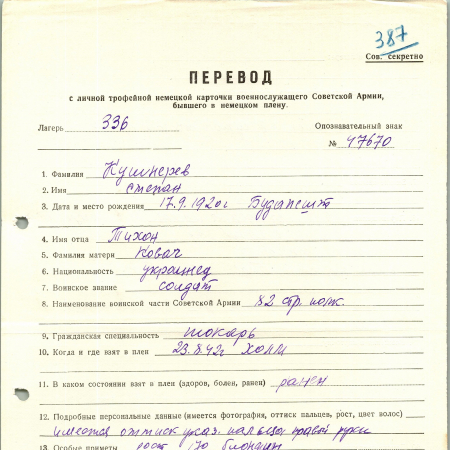 387
Сов. секретно
ПЕРЕВОД
с личной трофейной немецкой карточки военнослужащего Советской Армии,
бывшего в немецком плену.
Лагерь 336
Опознавательный знак
№ 47670
1. Фамилия Кушнерев
2. Имя степан
3. Дата и место рождения 17.9.1920г Будапешт
4. Имя отца Тихон
5. Фамилия матери Ковач
6. Национальность украинец
7. Воинское звание солдат
8. Наименование воинской части Советской Армии 82 стр. полк.
9. Гражданская специальность токарь
10. Когда и где взят в плен 23.8.42г Холм
11. В каком состоянии взят в плен (здоров, болен, ранен) ранен
12. Подробные персональные данные (имеется фотография, оттиск пальцев, рост, цвет волос)
имеется оттиск указ. пальца правой руки
13. Особые приметы рост 170 блондин